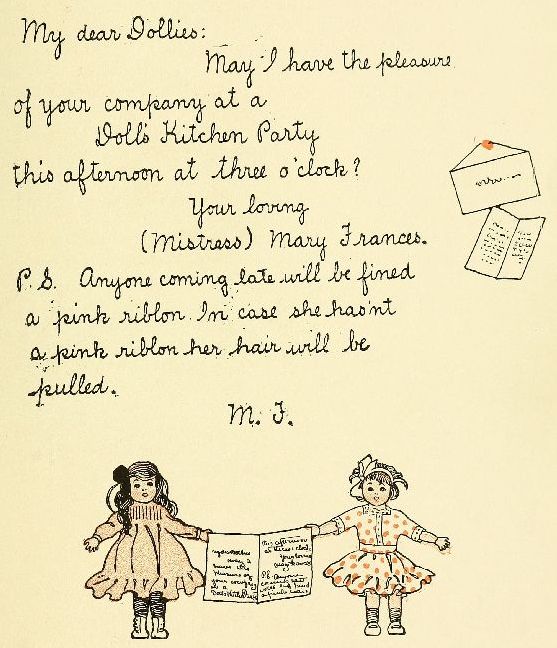 My dear Dollies:
May I have the pleasure
of your company at a
Doll's Kitchen Party
this afternoon at three o'clock?
Your loving
(Mistress) Mary Frances.
P.S. Anyone coming late will be fined
a pink ribbon. In case she hasn't
a pink ribbon her hair will be
pulled.
M. F.